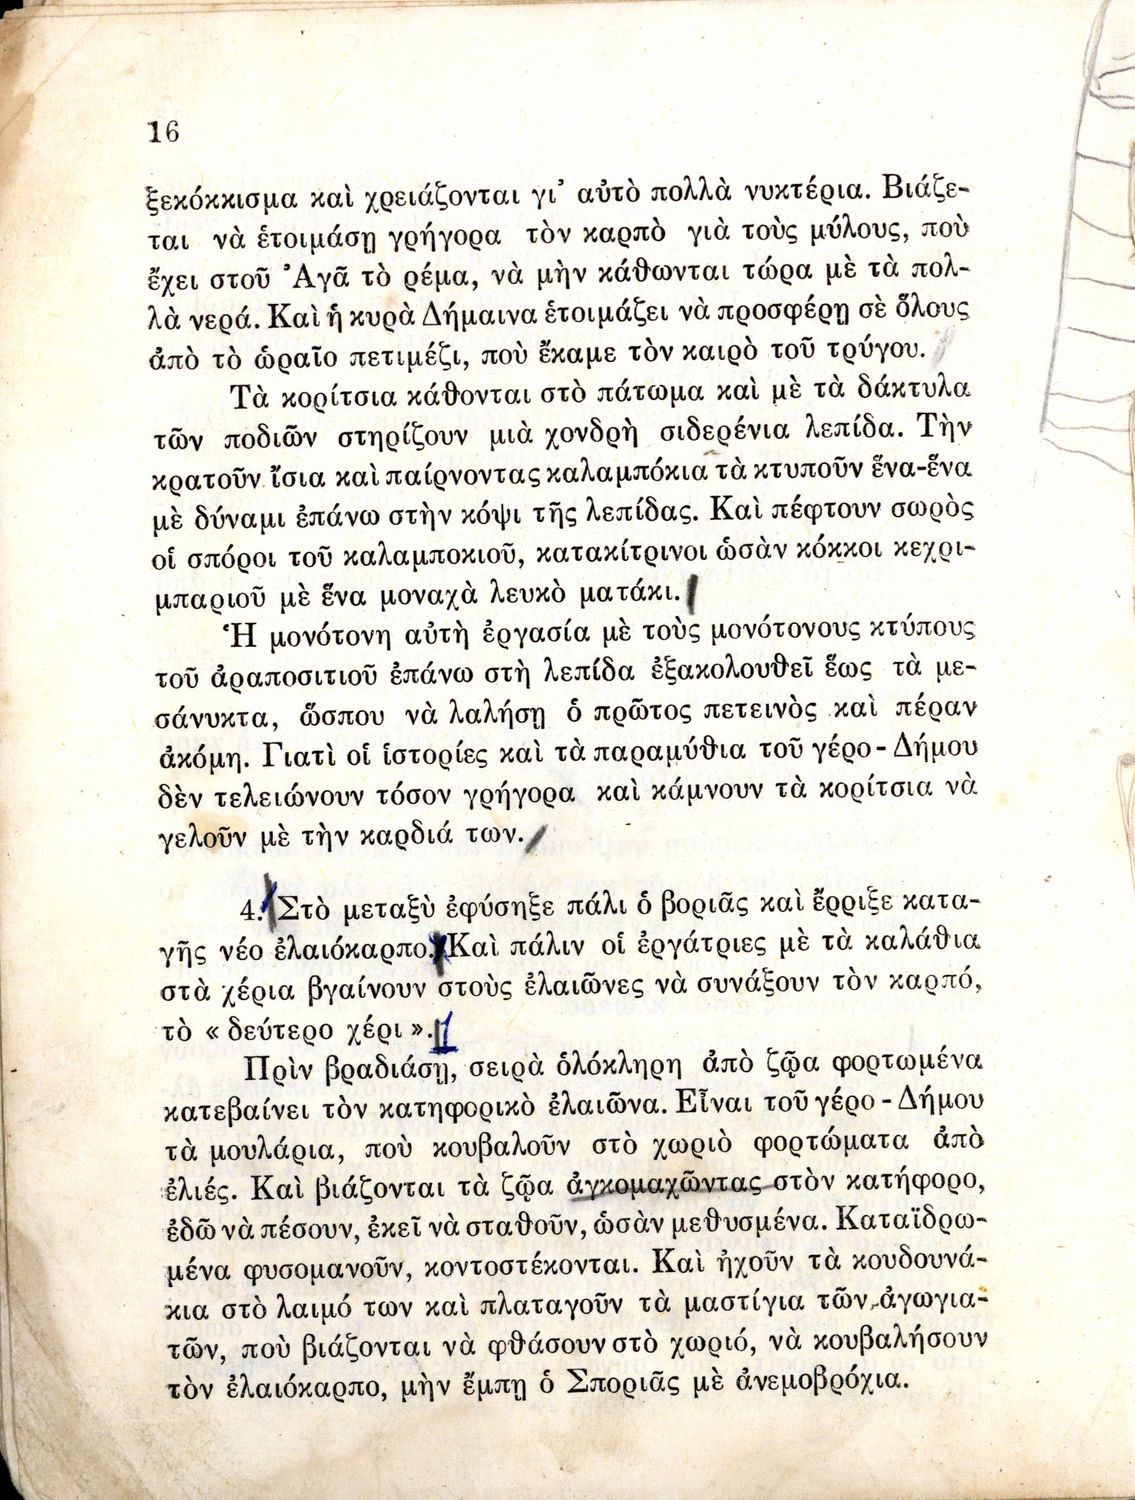 16
ξεκόκκισμα καὶ χρειάζονται γι’ αὐτὸ πολλὰ νυκτέρια. Βιάζε-
ται νὰ ἑτοιμάσῃ γρήγορα τὸν καρπὸ γιὰ τοὺς μύλους, ποὺ
ἔχει στοῦ ’Αγᾶ τὸ ρέμα, νὰ μὴν κάθωνται τώρα μὲ τὰ πολ-
λὰ νερά. Καὶ ἡ κυρὰ Δήμαινα ἑτοιμάζει νὰ προσφέρῃ σὲ ὅλους
ἀπὸ τὸ ὡραῖο πετιμέζι, ποὺ ἔκαμε τὸν καιρὸ τοῦ τρύγου.
Τὰ κορίτσια κάθονται στὸ πάτωμα καὶ μὲ τὰ δάκτυλα
τῶν ποδιῶν στηρίζουν μιὰ χονδρὴ σιδερένια λεπίδα. Τὴν
κρατοῦν ἴσια καὶ παίρνοντας καλαμπόκια τὰ κτυποῦν ἕνα-ἕνα
μὲ δύναμι ἐπάνω στὴν κόψι τῆς λεπίδας. Καὶ πέφτουν σωρὸς
οἱ σπόροι τοῦ καλαμποκιοῦ, κατακίτρινοι ὡσὰν κόκκοι κεχρι-
μπαριοῦ μὲ ἕνα μοναχὰ λευκὸ ματάκι.
Ἡ μονότονη αὐτὴ ἐργασία μὲ τοὺς μονότονους κτύπους
τοῦ ἀραποσιτιοῦ ἐπάνω στὴ λεπίδα ἐξακολουθεῖ ἕως τὰ με-
σάνυκτα, ὥσπου νὰ λαλήσῃ ὁ πρῶτος πετεινὸς καὶ πέραν
ἀκόμη. Γιατὶ οἱ ἱστορίες καὶ τὰ παραμύθια τοῦ γέρο - Δήμου
δὲν τελειώνουν τόσον γρήγορα καὶ κάμνουν τὰ κορίτσια νὰ
γελοῦν μὲ τὴν καρδιά των.
4. Στὸ μεταξὺ ἐφύσηξε πάλι ὁ βοριᾶς καὶ ἔρριξε κατα-
γῆς νέο ἐλαιόκαρπο. Καὶ πάλιν οἱ ἐργάτριες μὲ τὰ καλάθια
στὰ χέρια βγαίνουν στοὺς ἐλαιῶνες νὰ συνάξουν τὸν καρπό,
τὸ « δεύτερο χέρι ».
Πρὶν βραδιάσῃ, σειρὰ ὁλόκληρη ἀπὸ ζῷα φορτωμένα
κατεβαίνει τὸν κατηφορικὸ ἐλαιῶνα. Εἶναι τοῦ γέρο - Δήμου
τὰ μουλάρια, ποὺ κουβαλοῦν στὸ χωριὸ φορτώματα ἀπὸ
ἐλιές. Καὶ βιάζονται τὰ ζῷα ἀγκομαχῶντας στὸν κατήφορο,
ἐδῶ νὰ πέσουν, ἐκεῖ νὰ σταθοῦν, ὡσὰν μεθυσμένα. Καταϊδρω-
μένα φυσομανοῦν, κοντοστέκονται. Καὶ ἠχοῦν τὰ κουδουνά-
κια στὸ λαιμό των καὶ πλαταγοῦν τὰ μαστίγια τῶν ἀγωγια-
τῶν, ποὺ βιάζονται νὰ φθάσουν στὸ χωριό, νὰ κουβαλήσουν
τὸν ἐλαιόκαρπο, μὴν ἔμπῃ ὁ Σποριᾶς μὲ ἀνεμοβρόχια.